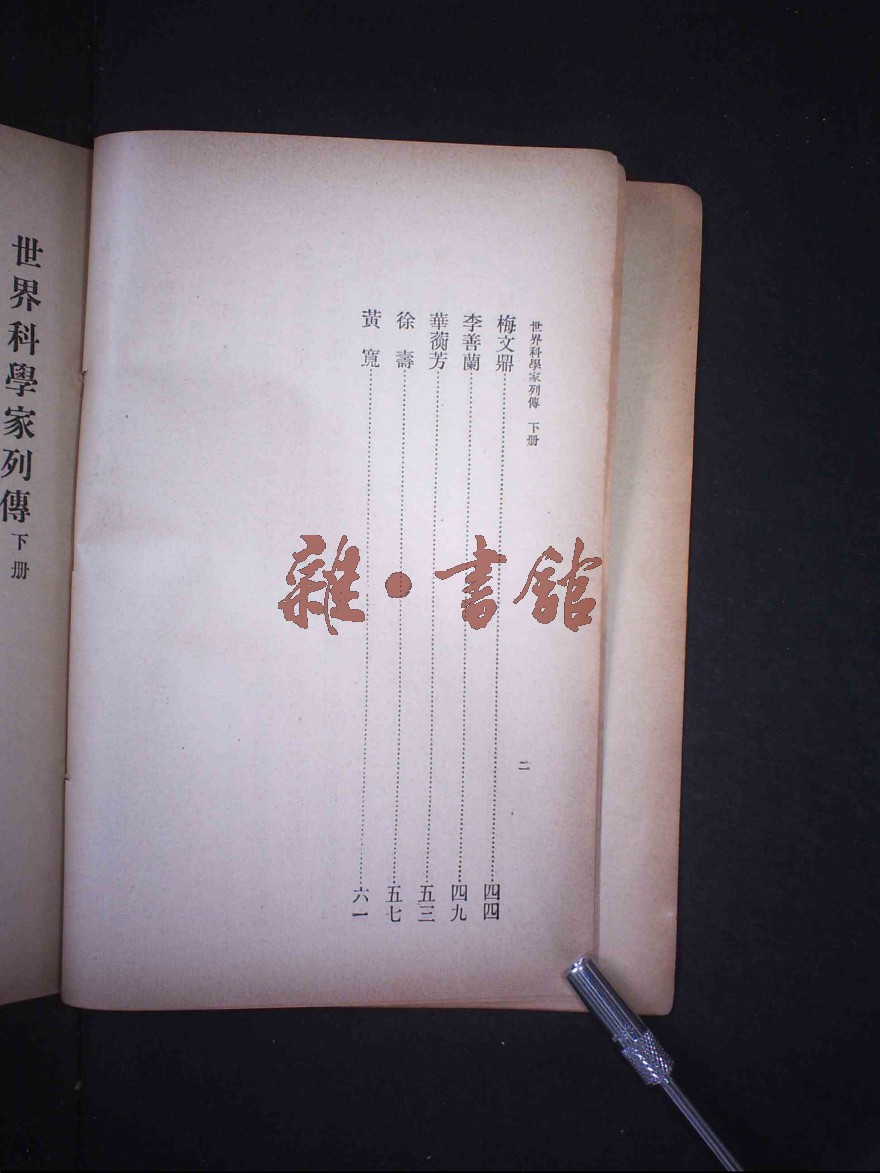 世界科學家列傳 下册
二
梅文鼎 四四
李善蘭 四九
華蘅芳 五三
徐壽 五七
黃寬 六一
世界科學家列傳 下册
雜·書館